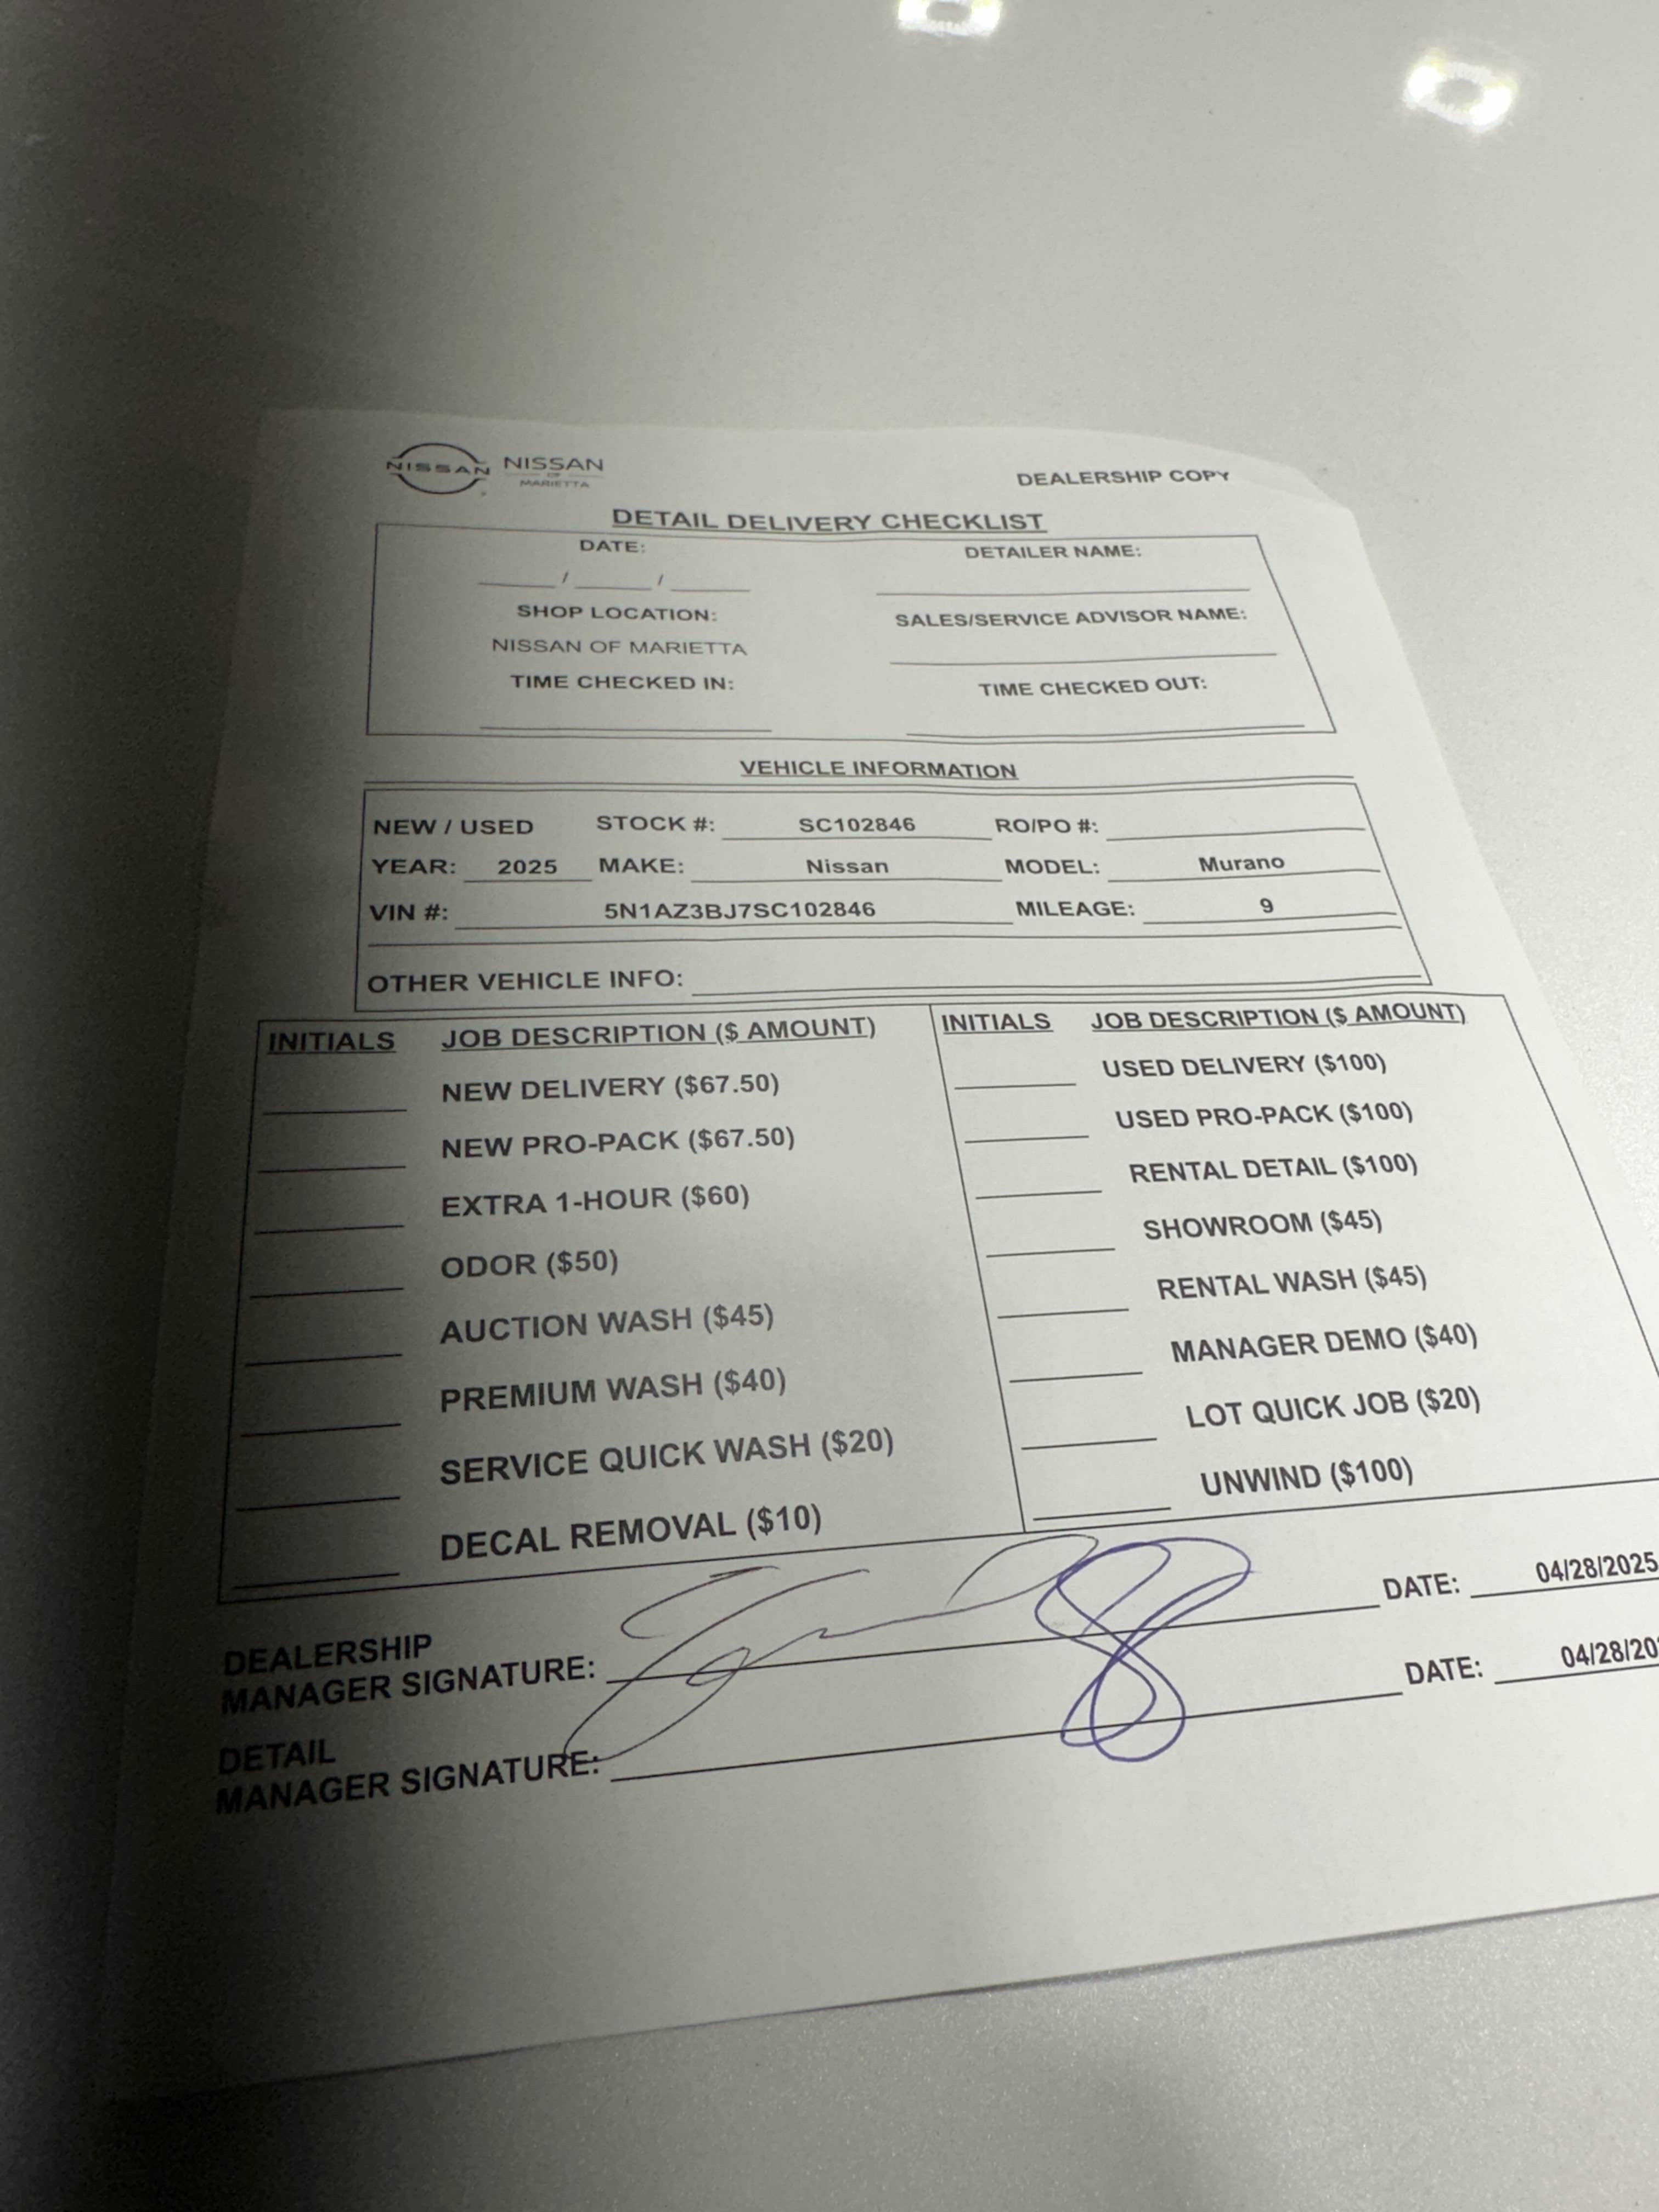 NISSAN NISSAN
OF
MARIETTA
DEALERSHIP COPY
DETAIL DELIVERY CHECKLIST
DATE: DETAILER NAME:
____/____/____
SHOP LOCATION: SALES/SERVICE ADVISOR NAME:
NISSAN OF MARIETTA
TIME CHECKED IN: TIME CHECKED OUT:
VEHICLE INFORMATION
NEW / USED STOCK #: SC102846 RO/PO #:
YEAR: 2025 MAKE: Nissan MODEL: Murano
VIN #: 5N1AZ3BJ7SC102846 MILEAGE: 9
OTHER VEHICLE INFO:
INITIALS JOB DESCRIPTION ($ AMOUNT)
NEW DELIVERY ($67.50)
NEW PRO-PACK ($67.50)
EXTRA 1-HOUR ($60)
ODOR ($50)
AUCTION WASH ($45)
PREMIUM WASH ($40)
SERVICE QUICK WASH ($20)
DECAL REMOVAL ($10)
INITIALS JOB DESCRIPTION ($ AMOUNT)
USED DELIVERY ($100)
USED PRO-PACK ($100)
RENTAL DETAIL ($100)
SHOWROOM ($45)
RENTAL WASH ($45)
MANAGER DEMO ($40)
LOT QUICK JOB ($20)
UNWIND ($100)
DEALERSHIP
MANAGER SIGNATURE: DATE: 04/28/2025
DETAIL
MANAGER SIGNATURE: DATE: 04/28/20